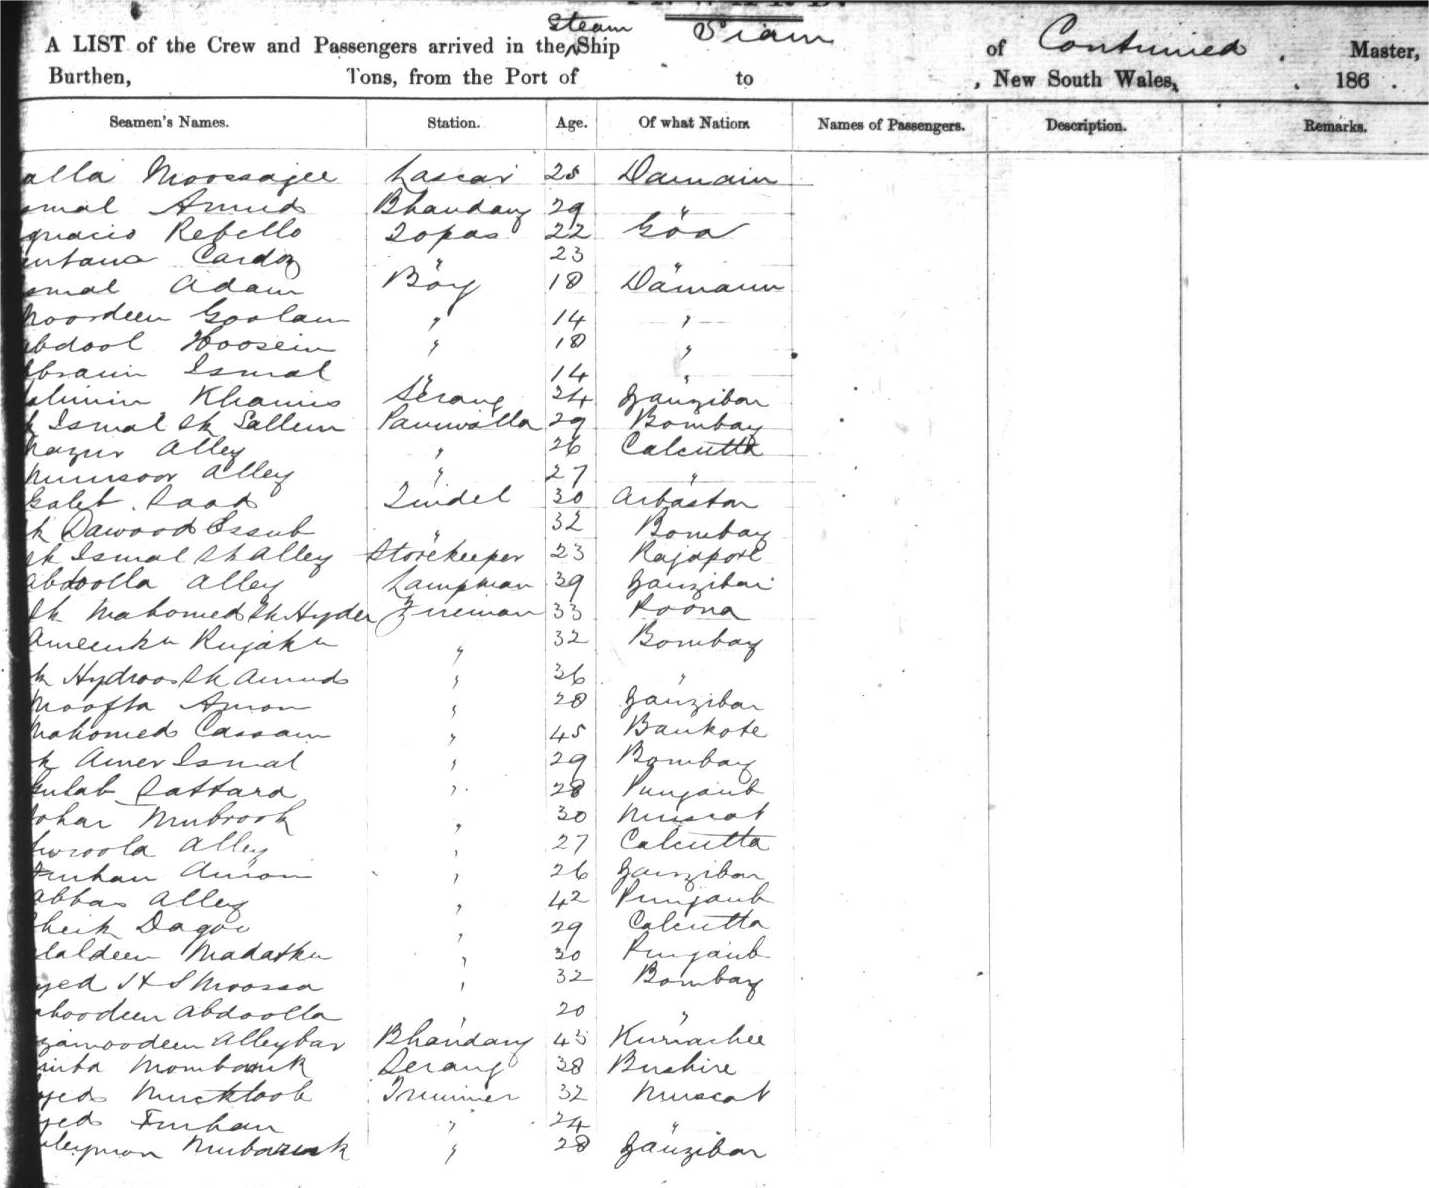 A LIST of the Crew and Passengers arrived in the Steam Ship Siam of Continued Master,
Burthen, Tons, from the Port of to , New South Wales, 186 .
Seamen's Names. Station. Age. Of what Nation. Names of Passengers. Description. Remarks.
alla Moossajee Lascar 25 Damain
smal Amud Bhandary 29 "
gnacio Rebello Topas 22 Goa
Cardoz " 23 "
smal Adam Boy 18 Damaun
Noordeen Goolam " 14 "
abdool Hoosein " 18 "
braim Ismal " 14 "
Khamis Serang 24 Zanzibar
k Ismal Sk Sallem Paniwalla 29 Bombay
Nazur Alley " 26 Calcutta
Munsoor Alley " 27 "
Galeb Saad Tindel 30 Arbastan
k Dawood Essub " 32 Bombay
Sk Ismal Sk Alley Storekeeper 23 Rajapore
abdoolla Alley Lampman 39 Zanzibar
Sk Mahomed Sk Hyder Fireman 33 Poona
Ameenka Rujaka " 32 Bombay
k Hydroos Sk Amud " 36 "
Moofta " 28 Zanzibar
Mahomed Cassam " 45 Bankote
k Amer Ismal " 29 Bombay
Gulab Sattara " 28 Punjaub
ohar Mubrook " 30 Muscat
Alley " 27 Calcutta
Furhan " 26 Zanzibar
abbas Alley " 42 Punjaub
heik Dagoo " 29 Calcutta
laldeen Madatka " 30 Punjaub
yed H S Moossa " 32 Bombay
hoodeen Abdoolla " 20 "
zamoodeen Alleybax Bhandary 43 Kurrachee
Mombaruk Serang 38 Bushire
yed Mucktoob Trimmer 32 Muscat
yed Furhan " 24 "
uleyman Mubaruk " 28 Zanzibar